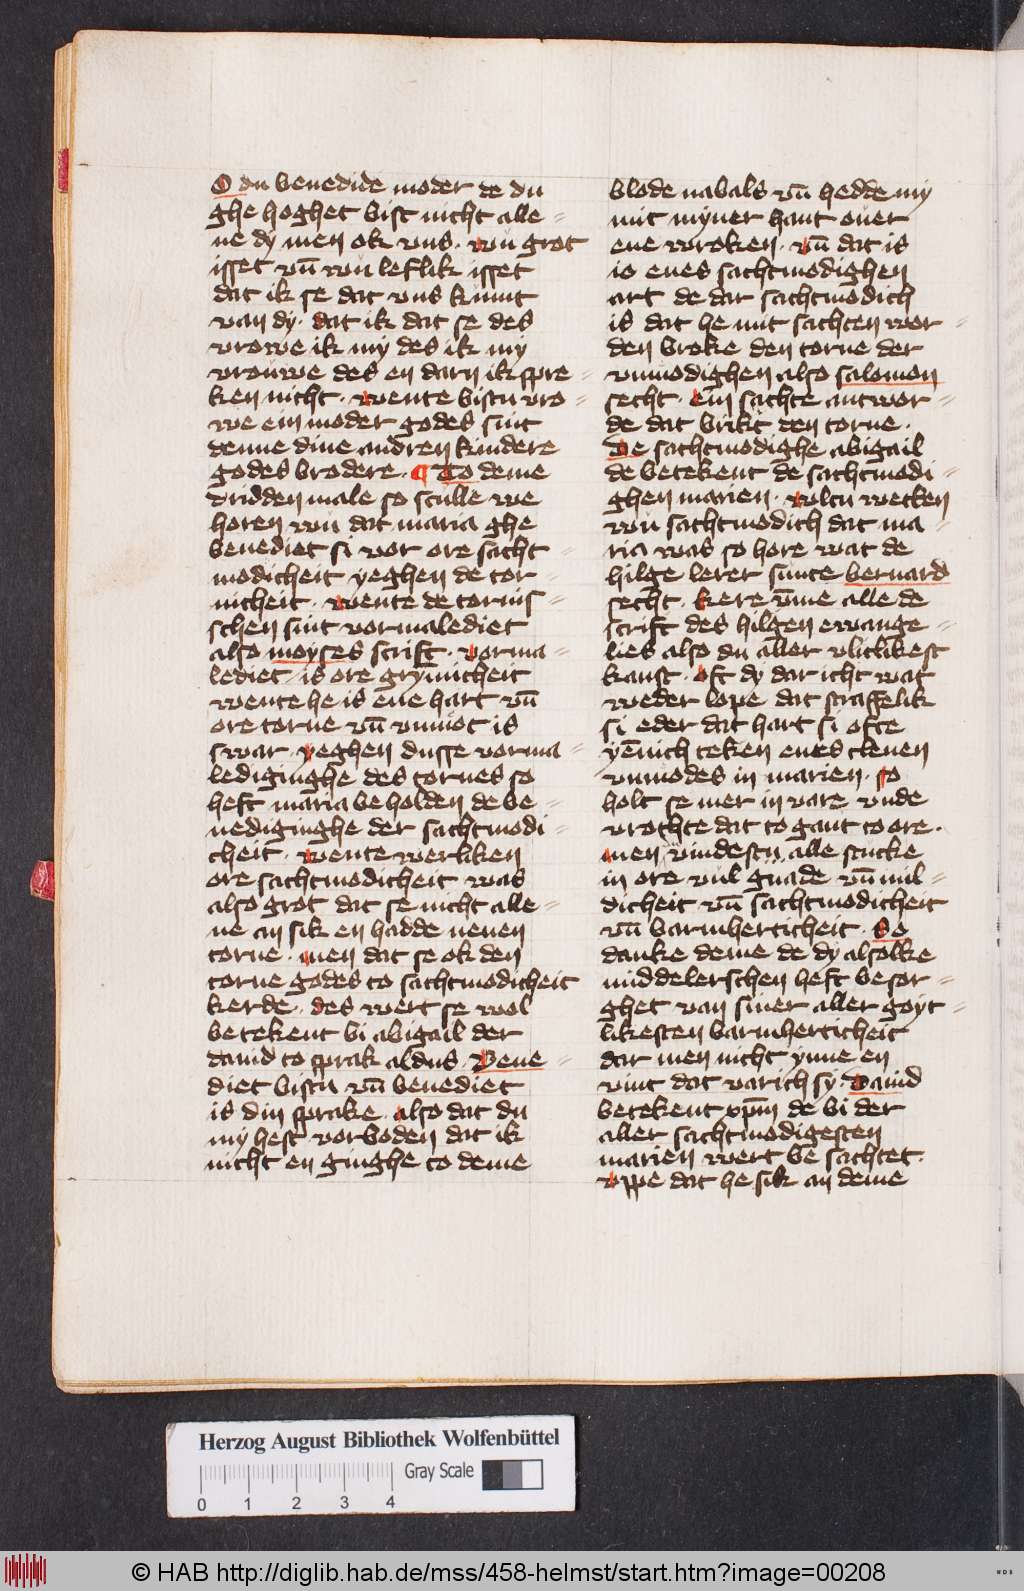 O du benedide moder de du
ghe hoghet bist nicht alle=
ne dy men ok vns. wu grot
isset vn̄ wu leflik isset
dat ik se dat vns kumt
van dy. dat ik dat se des
vrowe ik my des ik my
vrouwe des en darn ik spre=
ken nicht. wente bistu vro=
we ein moder godes sint
denne dine andren kindere
godes brodere. ¶ To deme
dridden male so sculle we
horen wu dat maria ghe
benediet si vor ore sacht=
modicheit yeghen de tor=
nicheit. wente de tornis=
schen sint vormalediet
also moyses scrift. vorma=
lediet is ore grymicheit
wente he is ene hart vn̄
ore torne vn̄ vnmot is
swar. yeghen dusse vorma=
ledijinghe des tornes so
heft maria be holden de be=
nediginghe der sachtmodi=
cheit. wente werliken
ore sachtmodicheit was
also grot dat se nicht alle=
ne an sik en hadde nenen
torne. men dat se ok den
torne godes to sachtmodicheit
kerde. des wert se wol
betekent bi abigail der
dauid to sprak aldus. Bene=
diet bistu vn̄ benediet
is din sprake. also dat du
my hest vorboden dat ik
nicht en ginghe to deme
blode nabals vn̄ hedde my
mit myner hant ouer
ene wroken. vn̄ dat is
io enes sachtmodighen
art de dar sachtmodich
is dat he mit sachten wor=
den broke den torne der
vnmodighen also salomon
secht. ein sachte antwor=
de dat brikt den torne.
De sachtmodighe abigail
de betekent de sachtmodi=
ghen marien. wltu wecken
wu sachtmodich dat ma=
ria was so hore wat de
hilge lerer sunte bernard
secht. kere v̄me alle de
scrift des hilgen ewange=
lies also du aller vlitlikest
kanst. oft dy dar icht wat
weder lope dat straffelik
si eder dat hart si ofte
yēnich teken enes clenen
vnmodes in marien. so
holt se mer in vare vnde
vrochte dat to gant to ore.
men vindestu alle stucke
in ore vul gnade vn̄ mil=
dicheit vn̄ sachtmodicheit
vn̄ barmherticheit. So
danke deme de dy alsolke
middelerschen heft besor=
ghet van siner aller goyt=
likesten barmherticheit
dar men nicht ynne en
vint dat varich sy. Dauid
betekent xp̄m de bi der
aller sachtmodigesten
marien wert be sachtet.
vppe dat he sik an deme
Herzog August Bibliothek Wolfenbüttel
Gray Scale
0 1 2 3 4
© HAB http://diglib.hab.de/mss/458-helmst/start.htm?image=00208